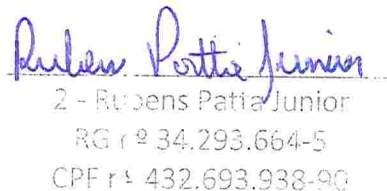 Rubens Pattia Junior
2 - Rubens Patia Junior
RG nº 34.293.664-5
CPF nº 432.693.938-90